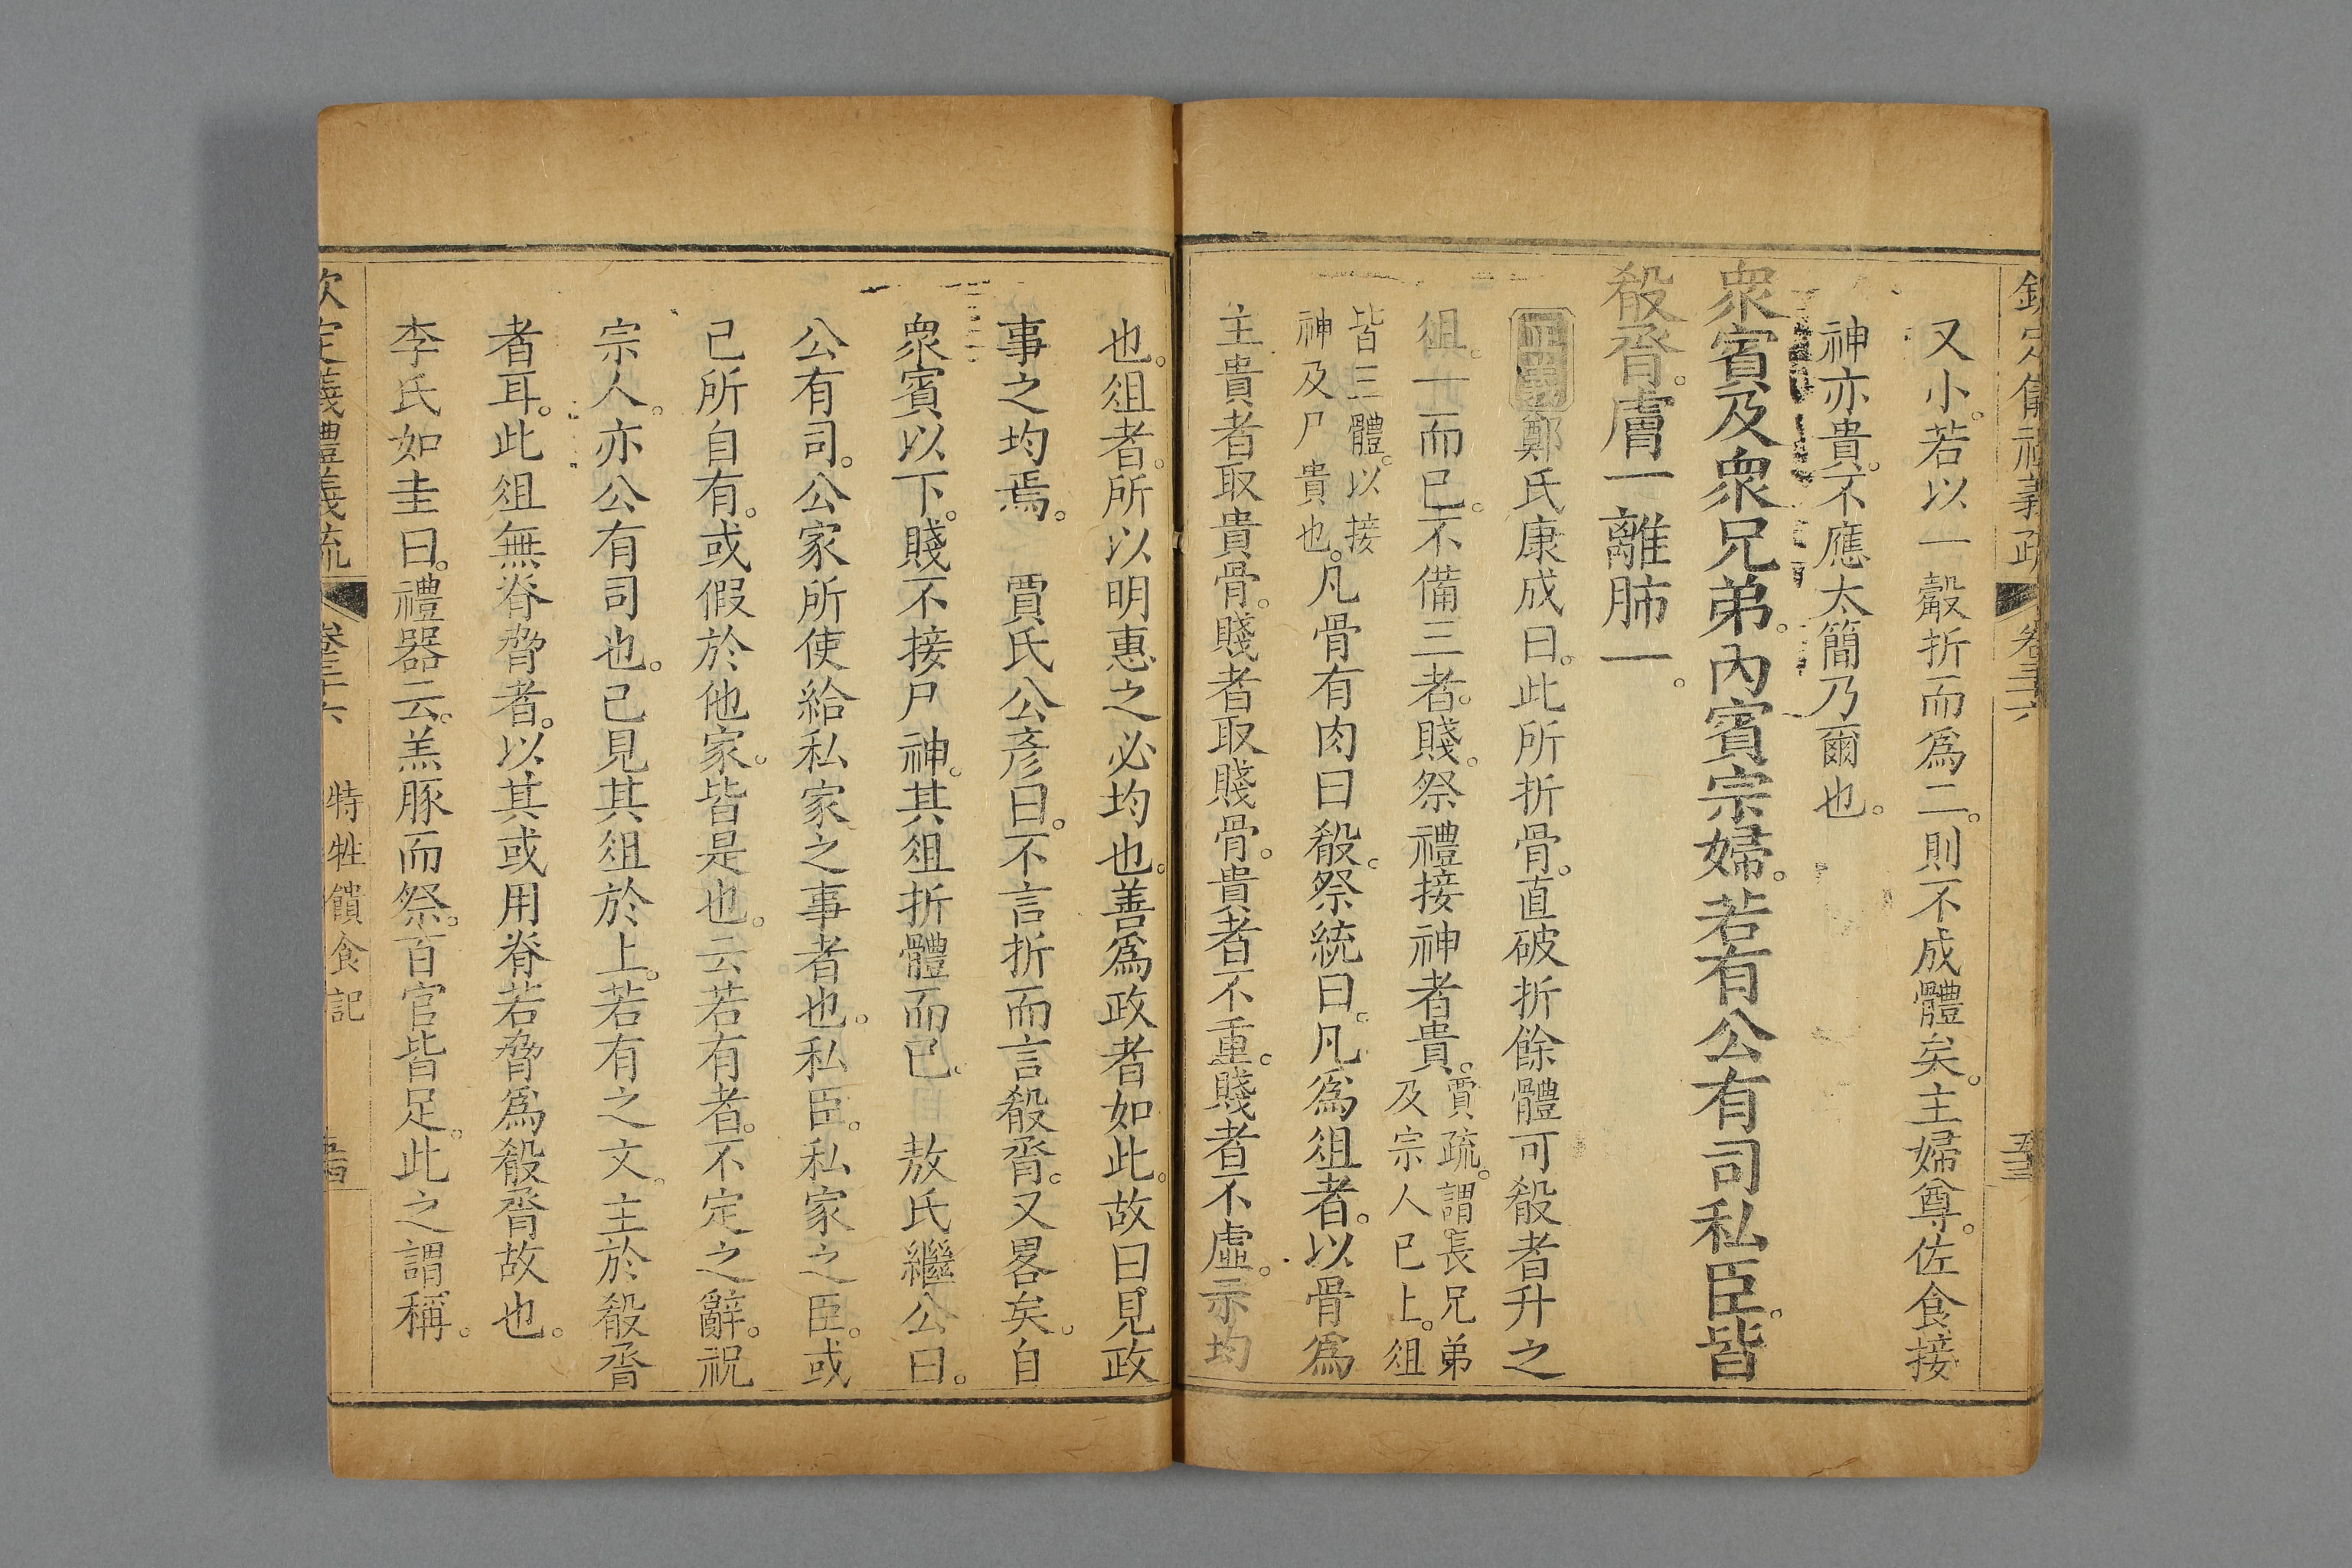 欽定儀禮義疏 卷三十六 五三
又小。若以一觳折而爲二。則不成體矣。主婦尊。佐食接
神亦貴。不應太簡乃爾也。
衆賓及衆兄弟。內賓宗婦。若有公有司私臣。皆
殽脀。膚一離肺一。
正義鄭氏康成曰。此所折骨。直破折餘體可殽者升之
俎。一而已。不備三者。賤。祭禮接神者貴。
賈疏。謂長兄弟
及宗人已上。俎
皆三體。以接
神及尸貴也。
凡骨有肉曰殽。祭統曰。凡爲俎者。以骨爲
主貴者取貴骨。賤者取賤骨。貴者不重。賤者不虛。示均
也。俎者。所以明惠之必均也。善爲政者如此。故曰。見政
事之均焉。 賈氏公彥曰。不言折而言殽脀。又畧矣。自
衆賓以下。賤不接尸神。其俎折體而已。 敖氏繼公曰。
公有司。公家所使給私家之事者也。私臣。私家之臣。或
己所自有。或假於他家。皆是也。云若有者。不定之辭。祝
宗人。亦公有司也。己見其俎於上。若有之文。主於殽脀
者耳。此俎無脊脅者。以其或用脊若脅爲殽脀故也。
李氏如圭曰。禮器云。羔豚而祭。百官皆足。此之謂稱。
欽定儀禮義疏 卷三十六 特牲饋食記 五四